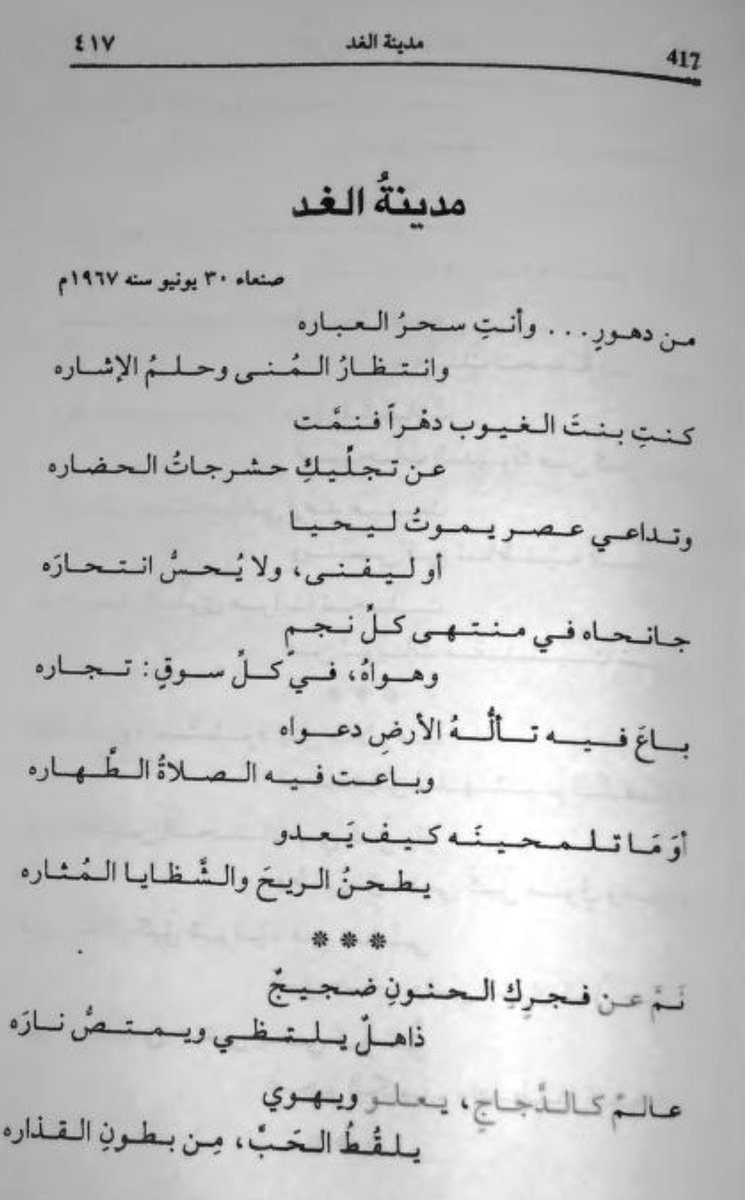 ٤١٧ مدينة الغد 417
مدينةُ الغد
صنعاء ٣٠ يونيو سنه ١٩٦٧م
من دهورٍ... وأنتِ سحرُ العباره
وانتظارُ المُنى وحلمُ الإشاره
كنتِ بنتَ الغيوب دهْراً فنمَّت
عن تجلّيكِ حشرجاتُ الحضاره
وتداعي عصر يموتُ ليحيا
أو ليفنى، ولا يُحسُّ انتحارَه
جانحاه في منتهى كلِّ نجمٍ
وهواهُ، في كلِّ سوقٍ: تجاره
باعَ فيه تألُّهُ الأرضِ دعواه
وباعت فيه الصلاةُ الطَّهاره
أوَ مَا تلمحينَه كيف يَعدو
يطحنُ الريحَ والشَّظايا المُثاره
***
نَمَّ عن فجرِكِ الحنونِ ضجيجٌ
ذاهلٌ يلتظي ويمتصُّ نارَه
عالمٌ كالدَّجاجِ، يعلو ويهوي
يلقُطُ الحَبَّ، مِن بطونِ القذاره